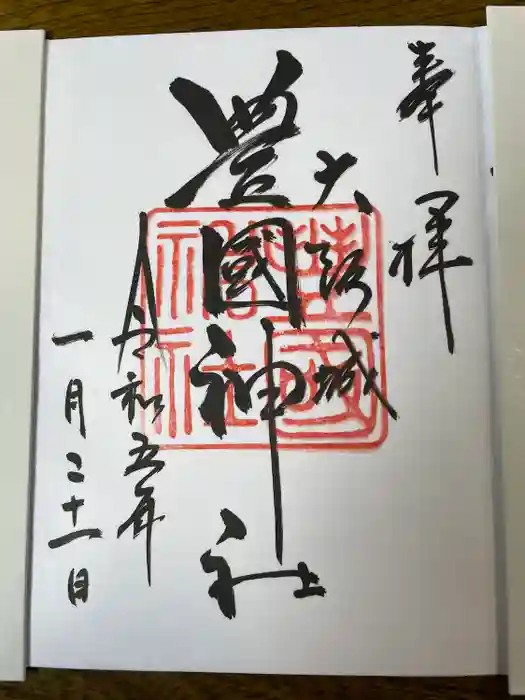 奉拝
大阪城
豊國神社
令和五年
一月二十一日
豊國神社